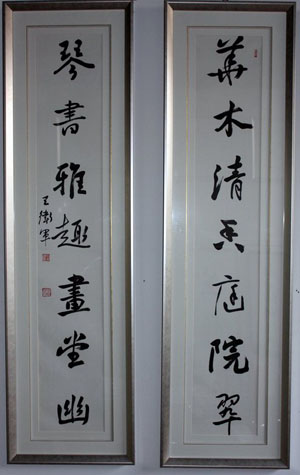 華木清香庭院翠
琴書雅趣畫堂幽
王衛軍